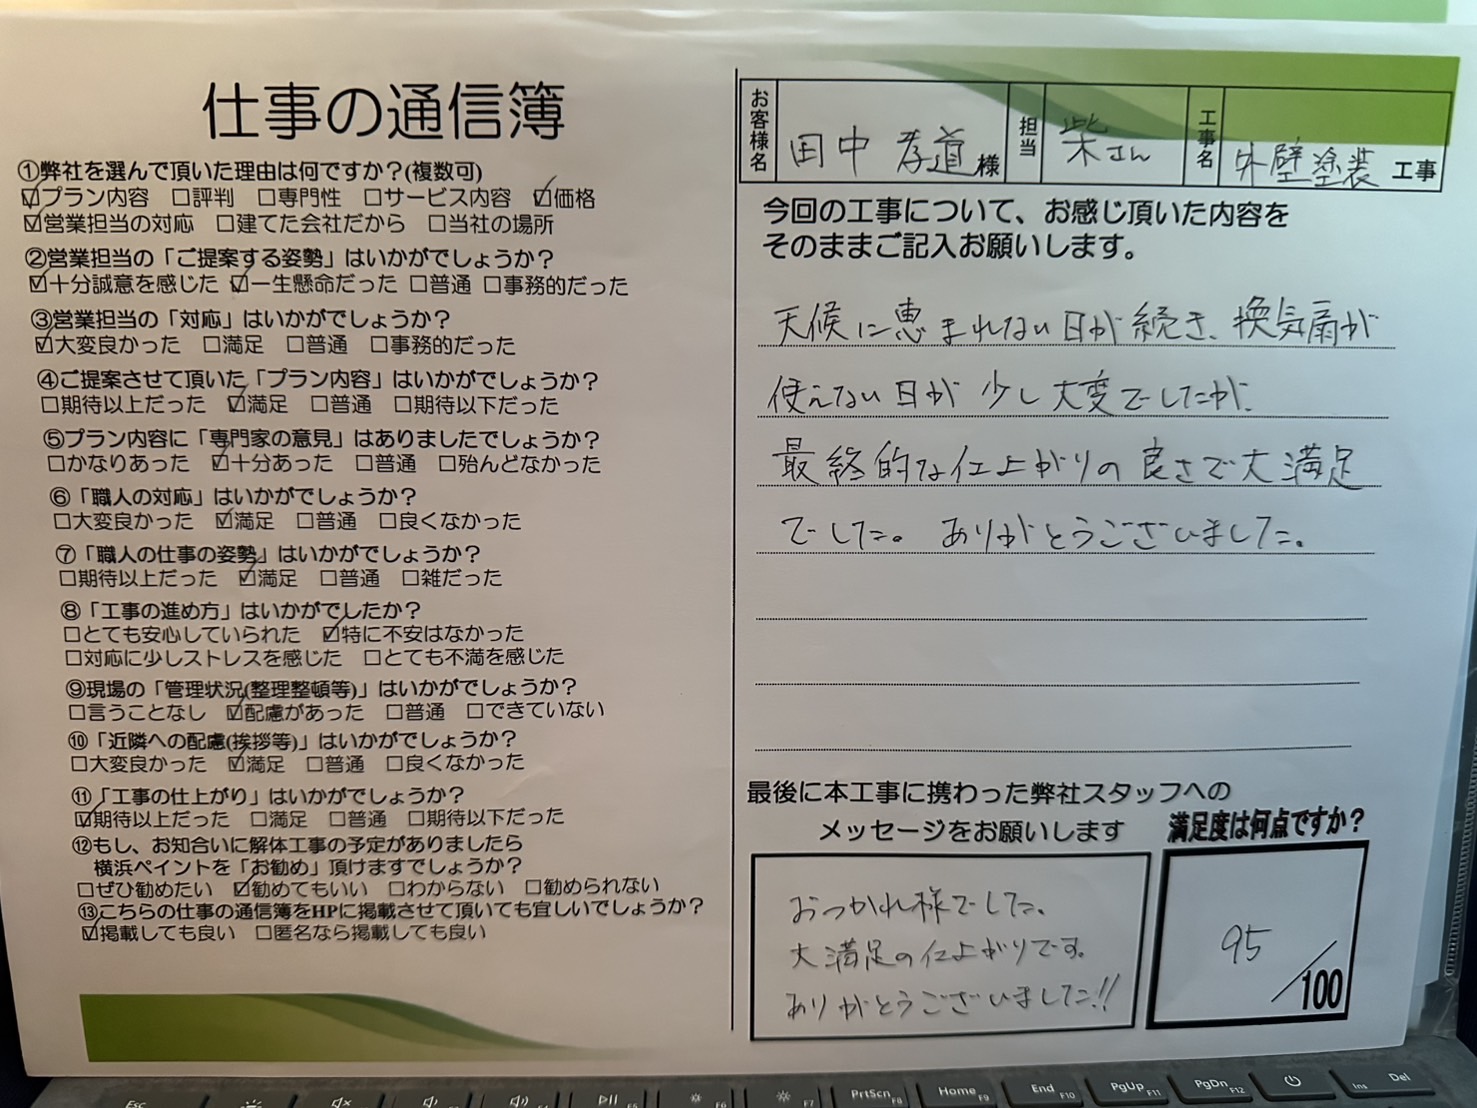 仕事の通信簿
①弊社を選んで頂いた理由は何ですか？(複数可)
☑プラン内容 □評判 □専門性 □サービス内容 ☑価格
☑営業担当の対応 □建てた会社だから □当社の場所
②営業担当の「ご提案する姿勢」はいかがでしょうか？
☑十分誠意を感じた ☑一生懸命だった □普通 □事務的だった
③営業担当の「対応」はいかがでしょうか？
☑大変良かった □満足 □普通 □事務的だった
④ご提案させて頂いた「プラン内容」はいかがでしょうか？
□期待以上だった ☑満足 □普通 □期待以下だった
⑤プラン内容に「専門家の意見」はありましたでしょうか？
□かなりあった ☑十分あった □普通 □殆んどなかった
⑥「職人の対応」はいかがでしょうか？
□大変良かった ☑満足 □普通 □良くなかった
⑦「職人の仕事の姿勢」はいかがでしょうか？
□期待以上だった ☑満足 □普通 □雑だった
⑧「工事の進め方」はいかがでしたか？
□とても安心していられた ☑特に不安はなかった
□対応に少しストレスを感じた □とても不満を感じた
⑨現場の「管理状況(整理整頓等)」はいかがでしょうか？
□言うことなし ☑配慮があった □普通 □できていない
⑩「近隣への配慮(挨拶等)」はいかがでしょうか？
□大変良かった ☑満足 □普通 □良くなかった
⑪「工事の仕上がり」はいかがでしょうか？
☑期待以上だった □満足 □普通 □期待以下だった
⑫もし、お知合いに解体工事の予定がありましたら
横浜ペイントを「お勧め」頂けますでしょうか？
□ぜひ勧めたい ☑勧めてもいい □わからない □勧められない
⑬こちらの仕事の通信簿をHPに掲載させて頂いても宜しいでしょうか？
☑掲載しても良い □匿名なら掲載しても良い
お客様名 田中 孝道 様 担当 柴さん 工事名 外壁塗装 工事
今回の工事について、お感じ頂いた内容を
そのままご記入お願いします。
天候に恵まれない日が続き、換気扇が
使えない日が少し大変でしたが、
最終的な仕上がりの良さで大満足
でした。ありがとうございました。
最後に本工事に携わった弊社スタッフへの
メッセージをお願いします
おつかれ様でした。
大満足の仕上がりです。
ありがとうございました!!
満足度は何点ですか？
95/100
Esc
F5
F6
F7
PrtScn F8
Home F9
End F10
PgUp F11
PgDn F12
Ins Del